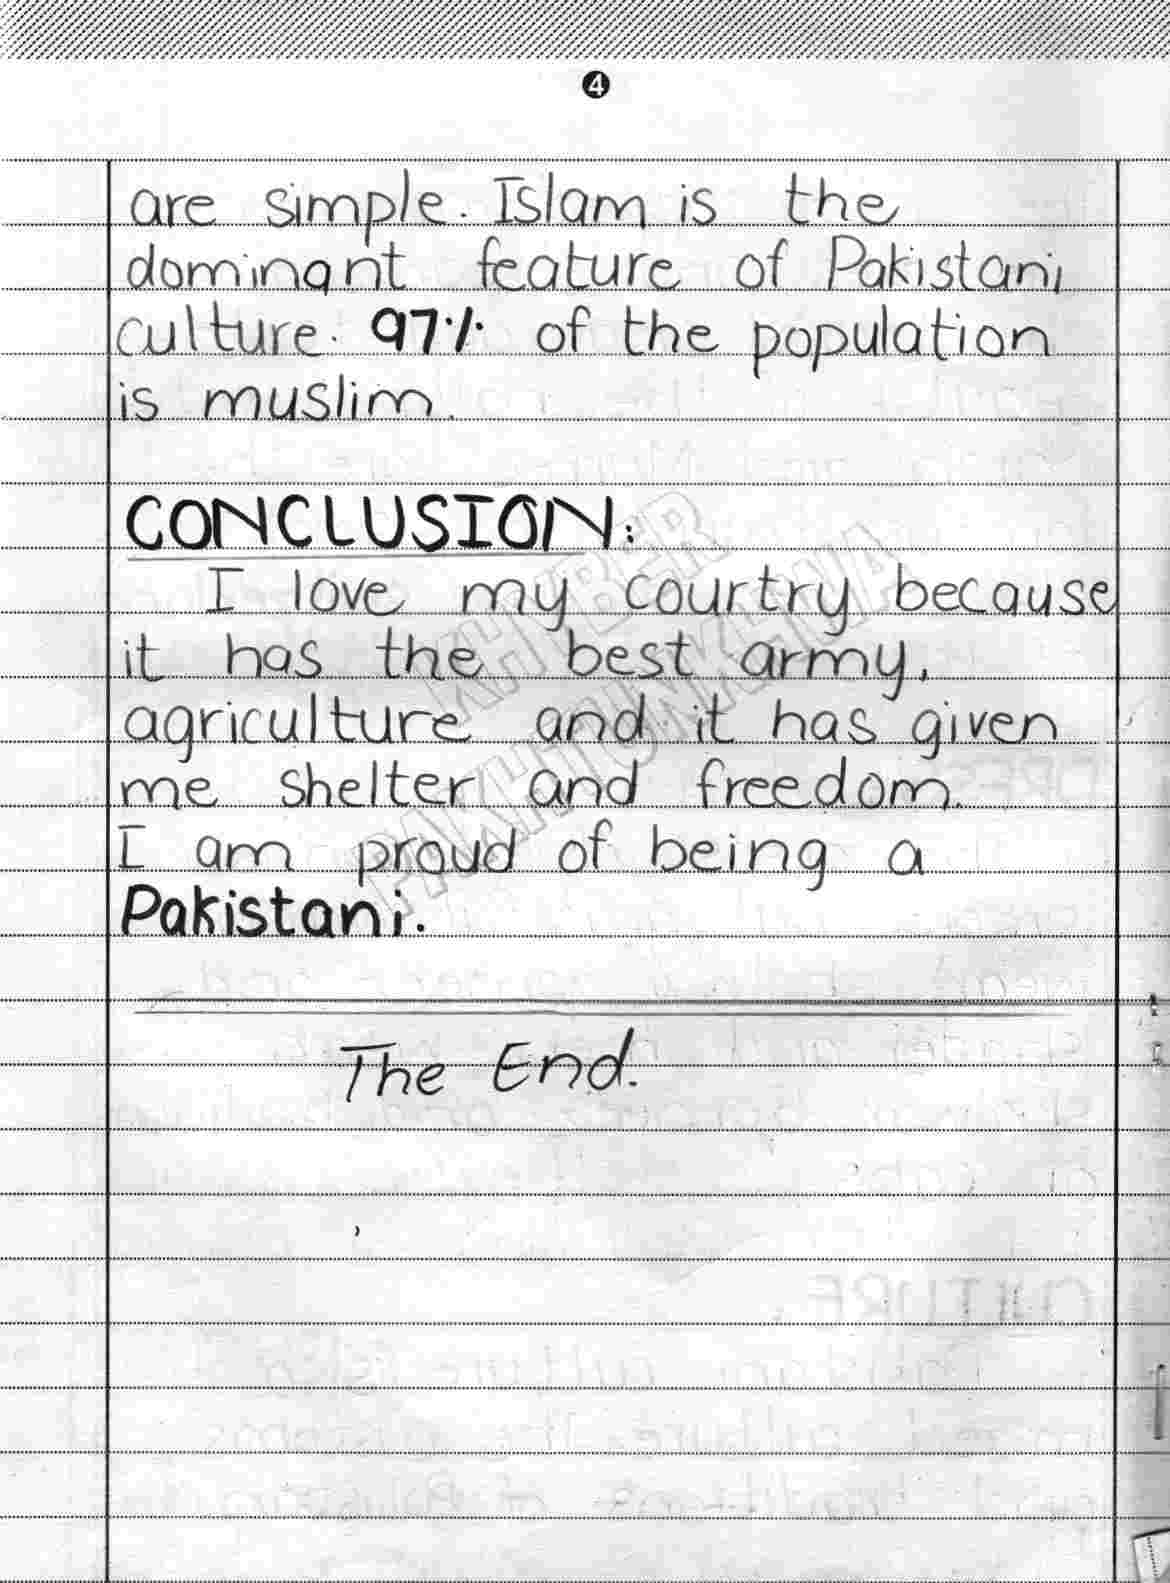 4
are simple. Islam is the
dominant feature of Pakistani
culture. 97% of the population
is muslim.
CONCLUSION:
I love my courtry because
it has the best army,
agriculture and it has given
me shelter and freedom.
I am proud of being a
Pakistani.
The End.
KHYBER
PAKHTUNKHWA